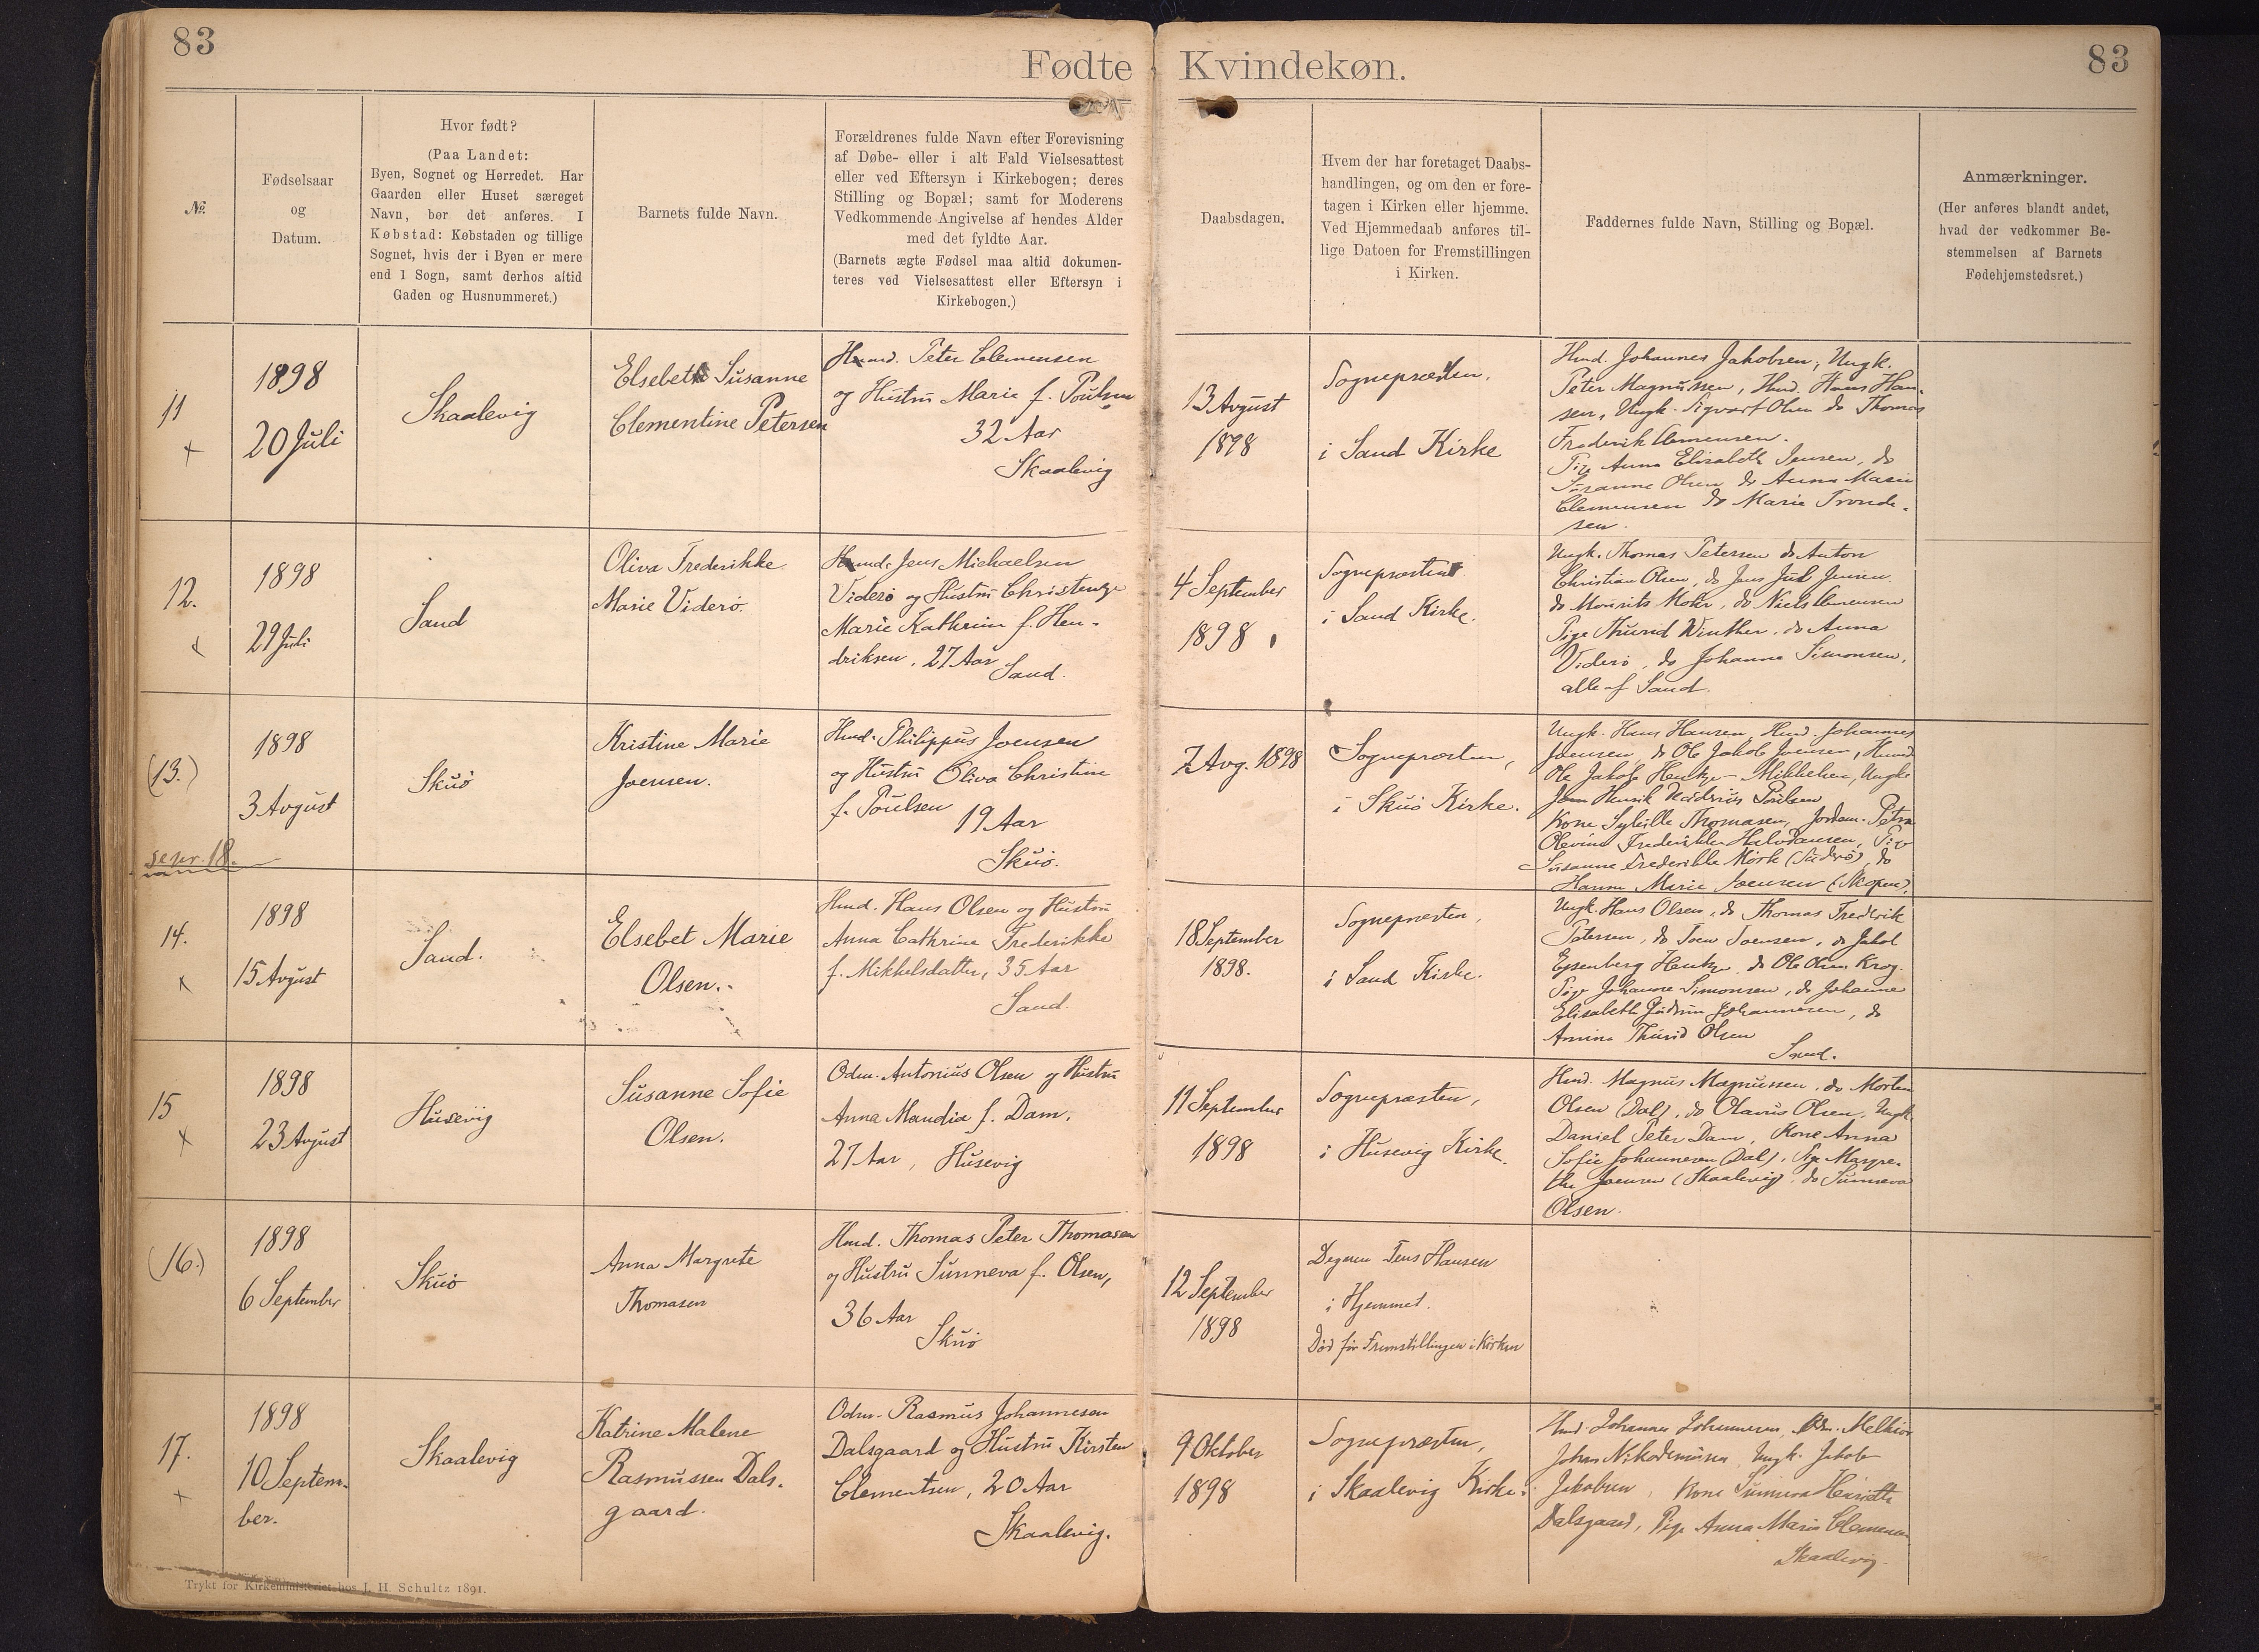 83
Fødte Kvindekøn.
83
№
Fødselsaar
og
Datum.
Hvor født?
(Paa Landet:
Byen, Sognet og Herredet. Har
Gaarden eller Huset særeget
Navn, bør det anføres. I
Købstad: Købstaden og tillige
Sognet, hvis der i Byen er mere
end 1 Sogn, samt derhos altid
Gaden og Husnummeret.)
Barnets fulde Navn.
Forældrenes fulde Navn efter Forevisning
af Døbe- eller i alt Fald Vielsesattest
eller ved Eftersyn i Kirkebogen; deres
Stilling og Bopæl; samt for Moderens
Vedkommende Angivelse af hendes Alder
med det fyldte Aar.
(Barnets ægte Fødsel maa altid dokumen-
teres ved Vielsesattest eller Eftersyn i
Kirkebogen.)
Daabsdagen.
Hvem der har foretaget Daabs-
handlingen, og om den er fore-
tagen i Kirken eller hjemme.
Ved Hjemmedaab anføres til-
lige Datoen for Fremstillingen
i Kirken.
Faddernes fulde Navn, Stilling og Bopæl.
Anmærkninger.
(Her anføres blandt andet,
hvad der vedkommer Be-
stemmelsen af Barnets
Fødehjemstedsret.)
11
+
1898
20 Juli
Skaalevig
Elsebeth Susanne
Clementine Petersen
Hmd. Peter Clemensen
og Hustru Marie f. Poulsen
32 Aar
Skaalevig
13 Avgust
1898
Sognepræsten,
i Sand Kirke
Hmd. Johannes Jakobsen, Ungk.
Peter Magnussen, Hmd. Hans Han-
sen, Ungk. Sigvart Olsen do Thomas
Frederik Clemensen.
Pige Anna Elisabeth Jensen, do
Susanne Olsen do Anna Marie
Clemensen do Marie Tronde-
sen.
12.
+
1898
29 Juli
Sand
Oliva Frederikke
Marie Viderø.
Hmd. Jens Michaelsen
Viderø og Hustru Christense
Marie Kathrine f. Hen-
driksen, 27 Aar
Sand.
4 September
1898
Sognepræsten
i Sand Kirke.
Ungk. Thomas Petersen do Anton
Christian Olsen, do Jens Jul Jensen.
do Mourits Mohr, do Niels Clemensen
Pige Thurid Winther, do Anna
Viderø, do Johanne Simonsen,
alle af Sand.
(13.)
1898
3 Avgust
Skuø
Kristine Marie
Joensen.
Hmd. Philippus Joensen
og Hustru Oliva Christine
f. Poulsen
19 Aar
Skuø.
7 Avg. 1898
Sognepræsten,
i Skuø Kirke.
Ungk. Hans Hansen, Hmd. Johannes
Joensen, do Ole Jakob Joensen, Hmd
Ole Jakob Hentze-Mikkelsen, Ungk.
Henrik Poulsen
Kone Sybille Thomasen, Jordem. Petra
Olevine Frederikke Halvdansen, Pige
Susanne Frederikke Mørk (Suderø), do
Hanne Marie Joensen (Skopen).
14.
+
1898
15 Avgust
Sand.
Elsebet Marie
Olsen.
Hmd. Hans Olsen og Hustru
Anna Cathrine Frederikke
f. Mikkelsdatter, 35 Aar
Sand.
18 September
1898.
Sognepræsten,
i Sand Kirke.
Ungk. Hans Olsen, do Thomas Frederik
Petersen, do Joen Joensen, do Jakob
Hentze, do Ole Krog.
Pige Johanne Simonsen, do Johanne
Elisabeth Gudrun Johannesen, do
Annina Thurid Olsen
Sand.
15
+
1898
23 Avgust
Husevig
Susanne Sofie
Olsen.
Odm. Antonius Olsen og Hustru
Anna Mandia f. Dam,
27 Aar, Husevig
11 September
1898
Sognepræsten,
i Husevig Kirke.
Hmd. Magnus Magnussen, do Morten
Olsen (Dal), do Olavus Olsen, Ungk.
Daniel Peter Dam, Kone Anna
Sofie Johannesen (Dal), Pige Margre-
the Joensen (Skaalevig), do Sunneva
Olsen.
(16.)
1898
6 September
Skuø
Anna Margrete
Thomasen
Hmd. Thomas Peter Thomasen
og Hustru Sunneva f. Olsen,
36 Aar
Skuø
12 September
1898
Degnen Jens Hansen
i Hjemmet.
Død før Fremstillingen i Kirken
17.
+
1898
10 Septem-
ber.
Skaalevig
Katrine Malene
Rasmussen Dals-
gaard.
Odm. Rasmus Johannesen
Dalsgaard og Hustru Kirsten
Clementsen, 20 Aar
Skaalevig.
9 Oktober
1898
Sognepræsten,
i Skaalevig Kirke.
Hmd. Johannes Johannesen, Odm. Melkior
Johan Nikodemusen, Ungk. Jakob
Jakobsen, Kone Sunneva Henriette
Dalsgaard, Pige Anna Marie Clemensen
Skaalevig.
Trykt for Kirkeministeriet hos J. H. Schultz 1891.